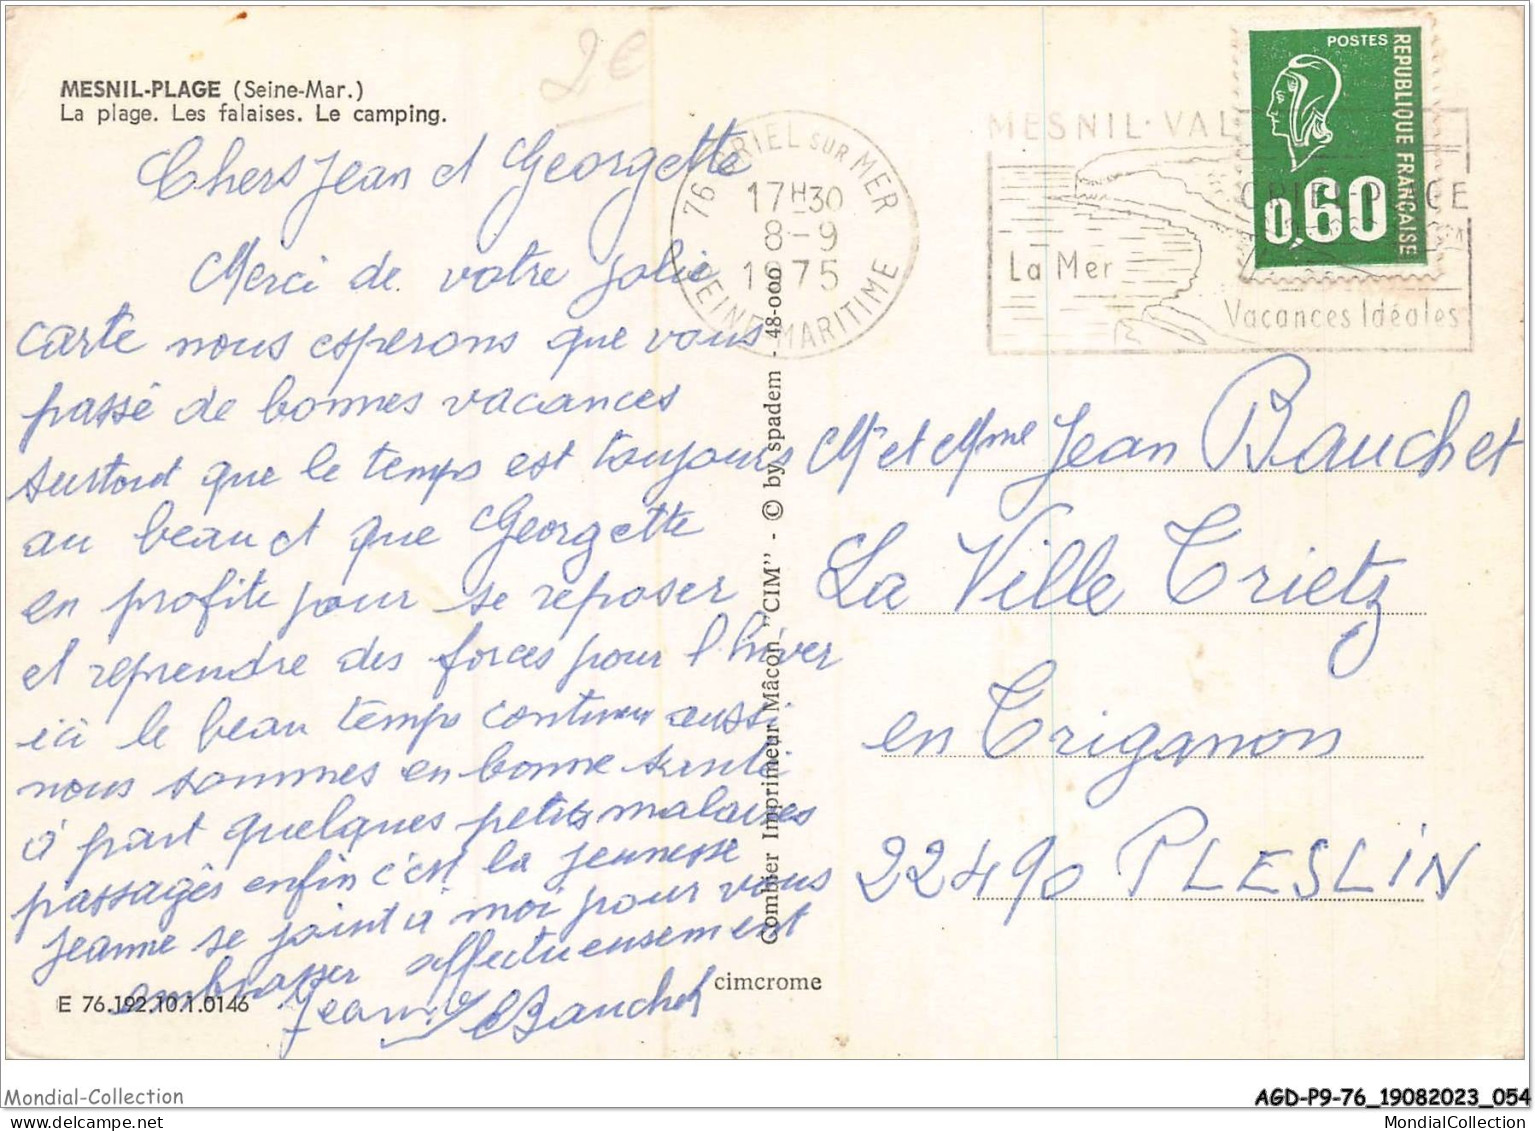 MESNIL-PLAGE (Seine-Mar.)
La plage. Les falaises. Le camping.
2€
Chers Jean et Georgette
Merci de votre jolie
carte nous esperons que vous
passé de bonnes vacances
surtout que le temps est toujours
au beau et que Georgette
en profite pour se reposer
et reprendre des forces pour l'hiver
ici le beau temps continu aussi
nous sommes en bonne santé
à part quelques petits malaises
passagés enfin c'est la jeunesse
Jeanne se joint à moi pour vous
embrasser affectueusement
Jean Bauchet
E 76.192.10.1.0146
Combier Imprimeur Mâcon "CIM" - © by spadem - 48-000
cimcrome
76 CRIEL SUR MER
17H30
8-9
1975
SEINE-MARITIME
MESNIL-VAL
CRIEL-PLAGE
La Mer
Vacances Idéales
POSTES
REPUBLIQUE FRANÇAISE
0,60
Mr et Mme Jean Bauchet
La Ville Trietz
en Triganon
22490 PLESLIN
Mondial-Collection
AGD-P9-76_19082023_054
MondialCollection